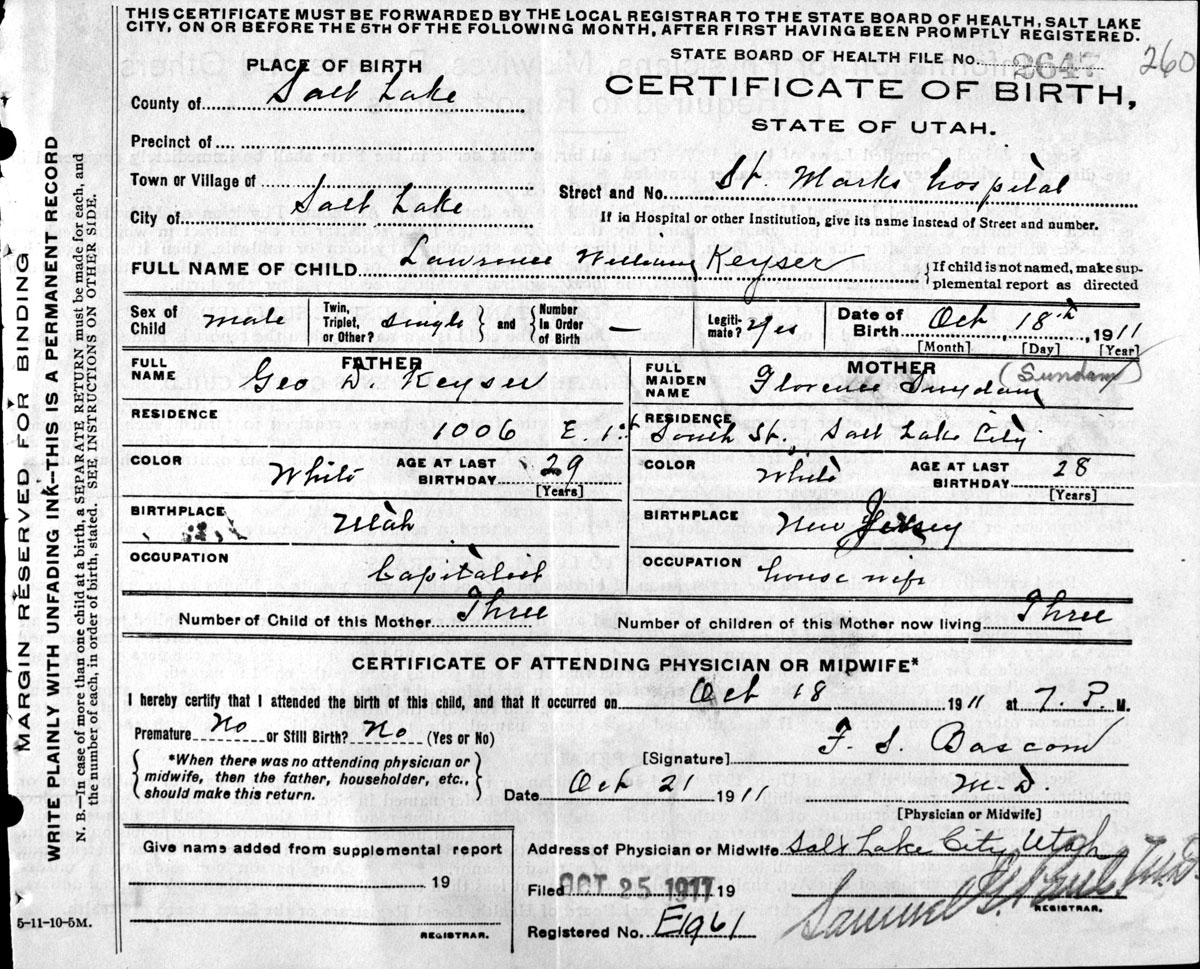 THIS CERTIFICATE MUST BE FORWARDED BY THE LOCAL REGISTRAR TO THE STATE BOARD OF HEALTH, SALT LAKE
CITY, ON OR BEFORE THE 5TH OF THE FOLLOWING MONTH, AFTER FIRST HAVING BEEN PROMPTLY REGISTERED.
STATE BOARD OF HEALTH FILE No. 2647 260
PLACE OF BIRTH
CERTIFICATE OF BIRTH,
County of Salt Lake
STATE OF UTAH.
Precinct of
Town or Village of
Street and No. St. Marks hospital
City of Salt Lake
If in Hospital or other Institution, give its name instead of Street and number.
FULL NAME OF CHILD Lawrence William Keyser {If child is not named, make sup-
plemental report as directed
Sex of Child male Twin, Triplet, or Other? single } and { Number In Order of Birth — Legiti-mate? yes Date of Birth Oct 18th, 1911
[Month] [Day] [Year]
FATHER
MOTHER (Sundam)
FULL NAME Geo D. Keyser
FULL MAIDEN NAME Florence
RESIDENCE 1006 E. 1st
RESIDENCE South St., Salt Lake City
COLOR White AGE AT LAST BIRTHDAY 29 [Years]
COLOR White AGE AT LAST BIRTHDAY 28 [Years]
BIRTHPLACE Utah
BIRTHPLACE New Jersey
OCCUPATION Capitalist
OCCUPATION house wife
Number of Child of this Mother Three
Number of children of this Mother now living Three
CERTIFICATE OF ATTENDING PHYSICIAN OR MIDWIFE*
I hereby certify that I attended the birth of this child, and that it occurred on Oct 18 1911 at 7. P. M.
Premature No or Still Birth? No (Yes or No)
F. S. Bascom
[Signature]
{ *When there was no attending physician or
midwife, then the father, householder, etc.,
should make this return. }
Date Oct 21 1911 M. D.
[Physician or Midwife]
Give name added from supplemental report
19
REGISTRAR.
Address of Physician or Midwife Salt Lake City, Utah
Filed OCT 25 1911 19
Samuel G. Paul, M.D.
REGISTRAR.
Registered No. E1961
MARGIN RESERVED FOR BINDING
WRITE PLAINLY WITH UNFADING INK--THIS IS A PERMANENT RECORD
N. B.—In case of more than one child at a birth, a SEPARATE RETURN must be made for each, and
the number of each, in order of birth, stated. SEE INSTRUCTIONS ON OTHER SIDE.
5-11-10-5M.